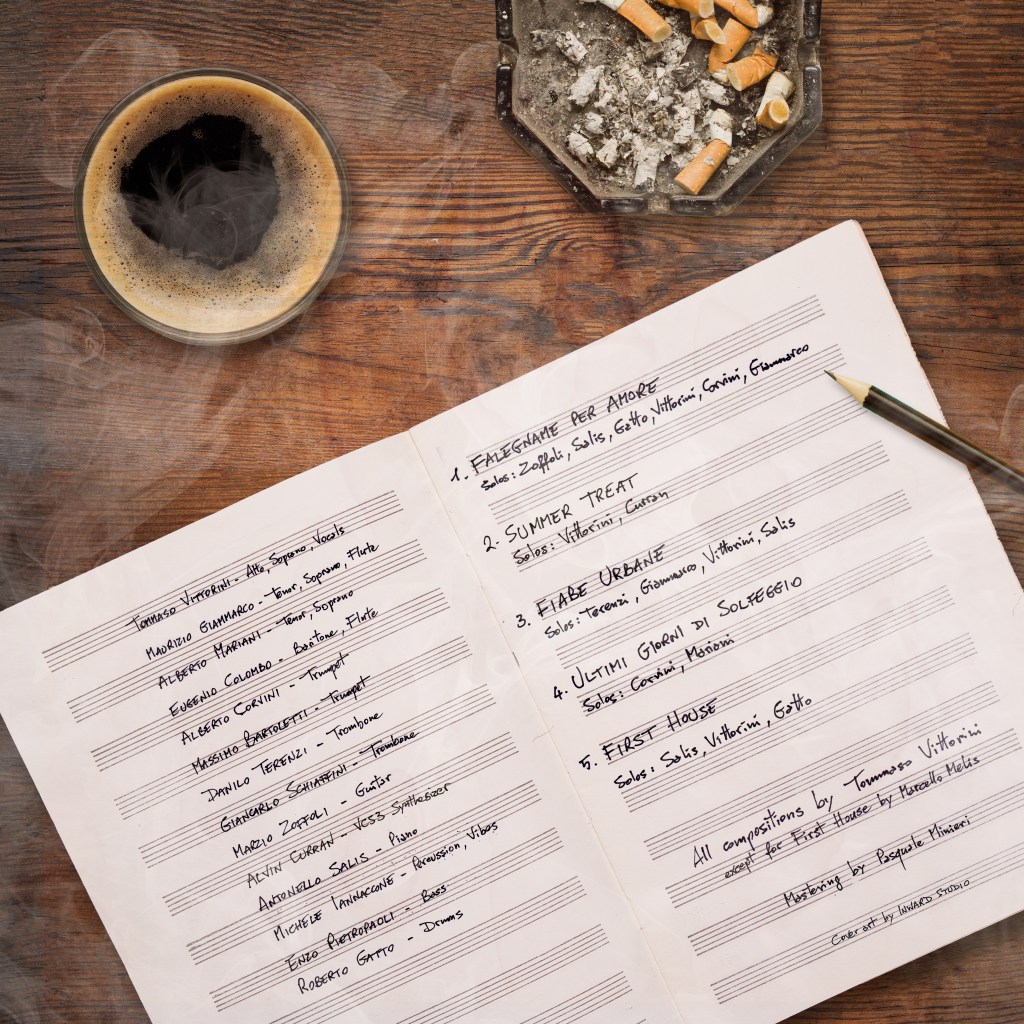 Tommaso Vittorini - Alto, Soprano, Vocals
Maurizio Giammarco - Tenor, Soprano, Flute
Alberto Mariani - Tenor, Soprano
Eugenio Colombo - Baritone, Flute
Alberto Corvini - Trumpet
Massimo Bartoletti - Trumpet
Danilo Terenzi - Trombone
Giancarlo Schiaffini - Trombone
Marzio Zoffoli - Guitar
Alvin Curran - VCS3 Synthesizer
Antonello Salis - Piano
Michele Iannaccone - Percussion, Vibes
Enzo Pietropaoli - Bass
Roberto Gatto - Drums
1. FALEGNAME PER AMORE
Solos: Zoffoli, Salis, Gatto, Vittorini, Corvini, Giammarco
2. SUMMER TREAT
Solos: Vittorini, Curran
3. FIABE URBANE
Solos: Terenzi, Giammarco, Vittorini, Salis
4. ULTIMI GIORNI DI SOLFEGGIO
Solos: Corvini, Mariani
5. FIRST HOUSE
Solos: Salis, Vittorini, Gatto
All compositions by Tommaso Vittorini
except for First House by Marcello Melis
Mastering by Pasquale Minieri
Cover art by INWARD STUDIO